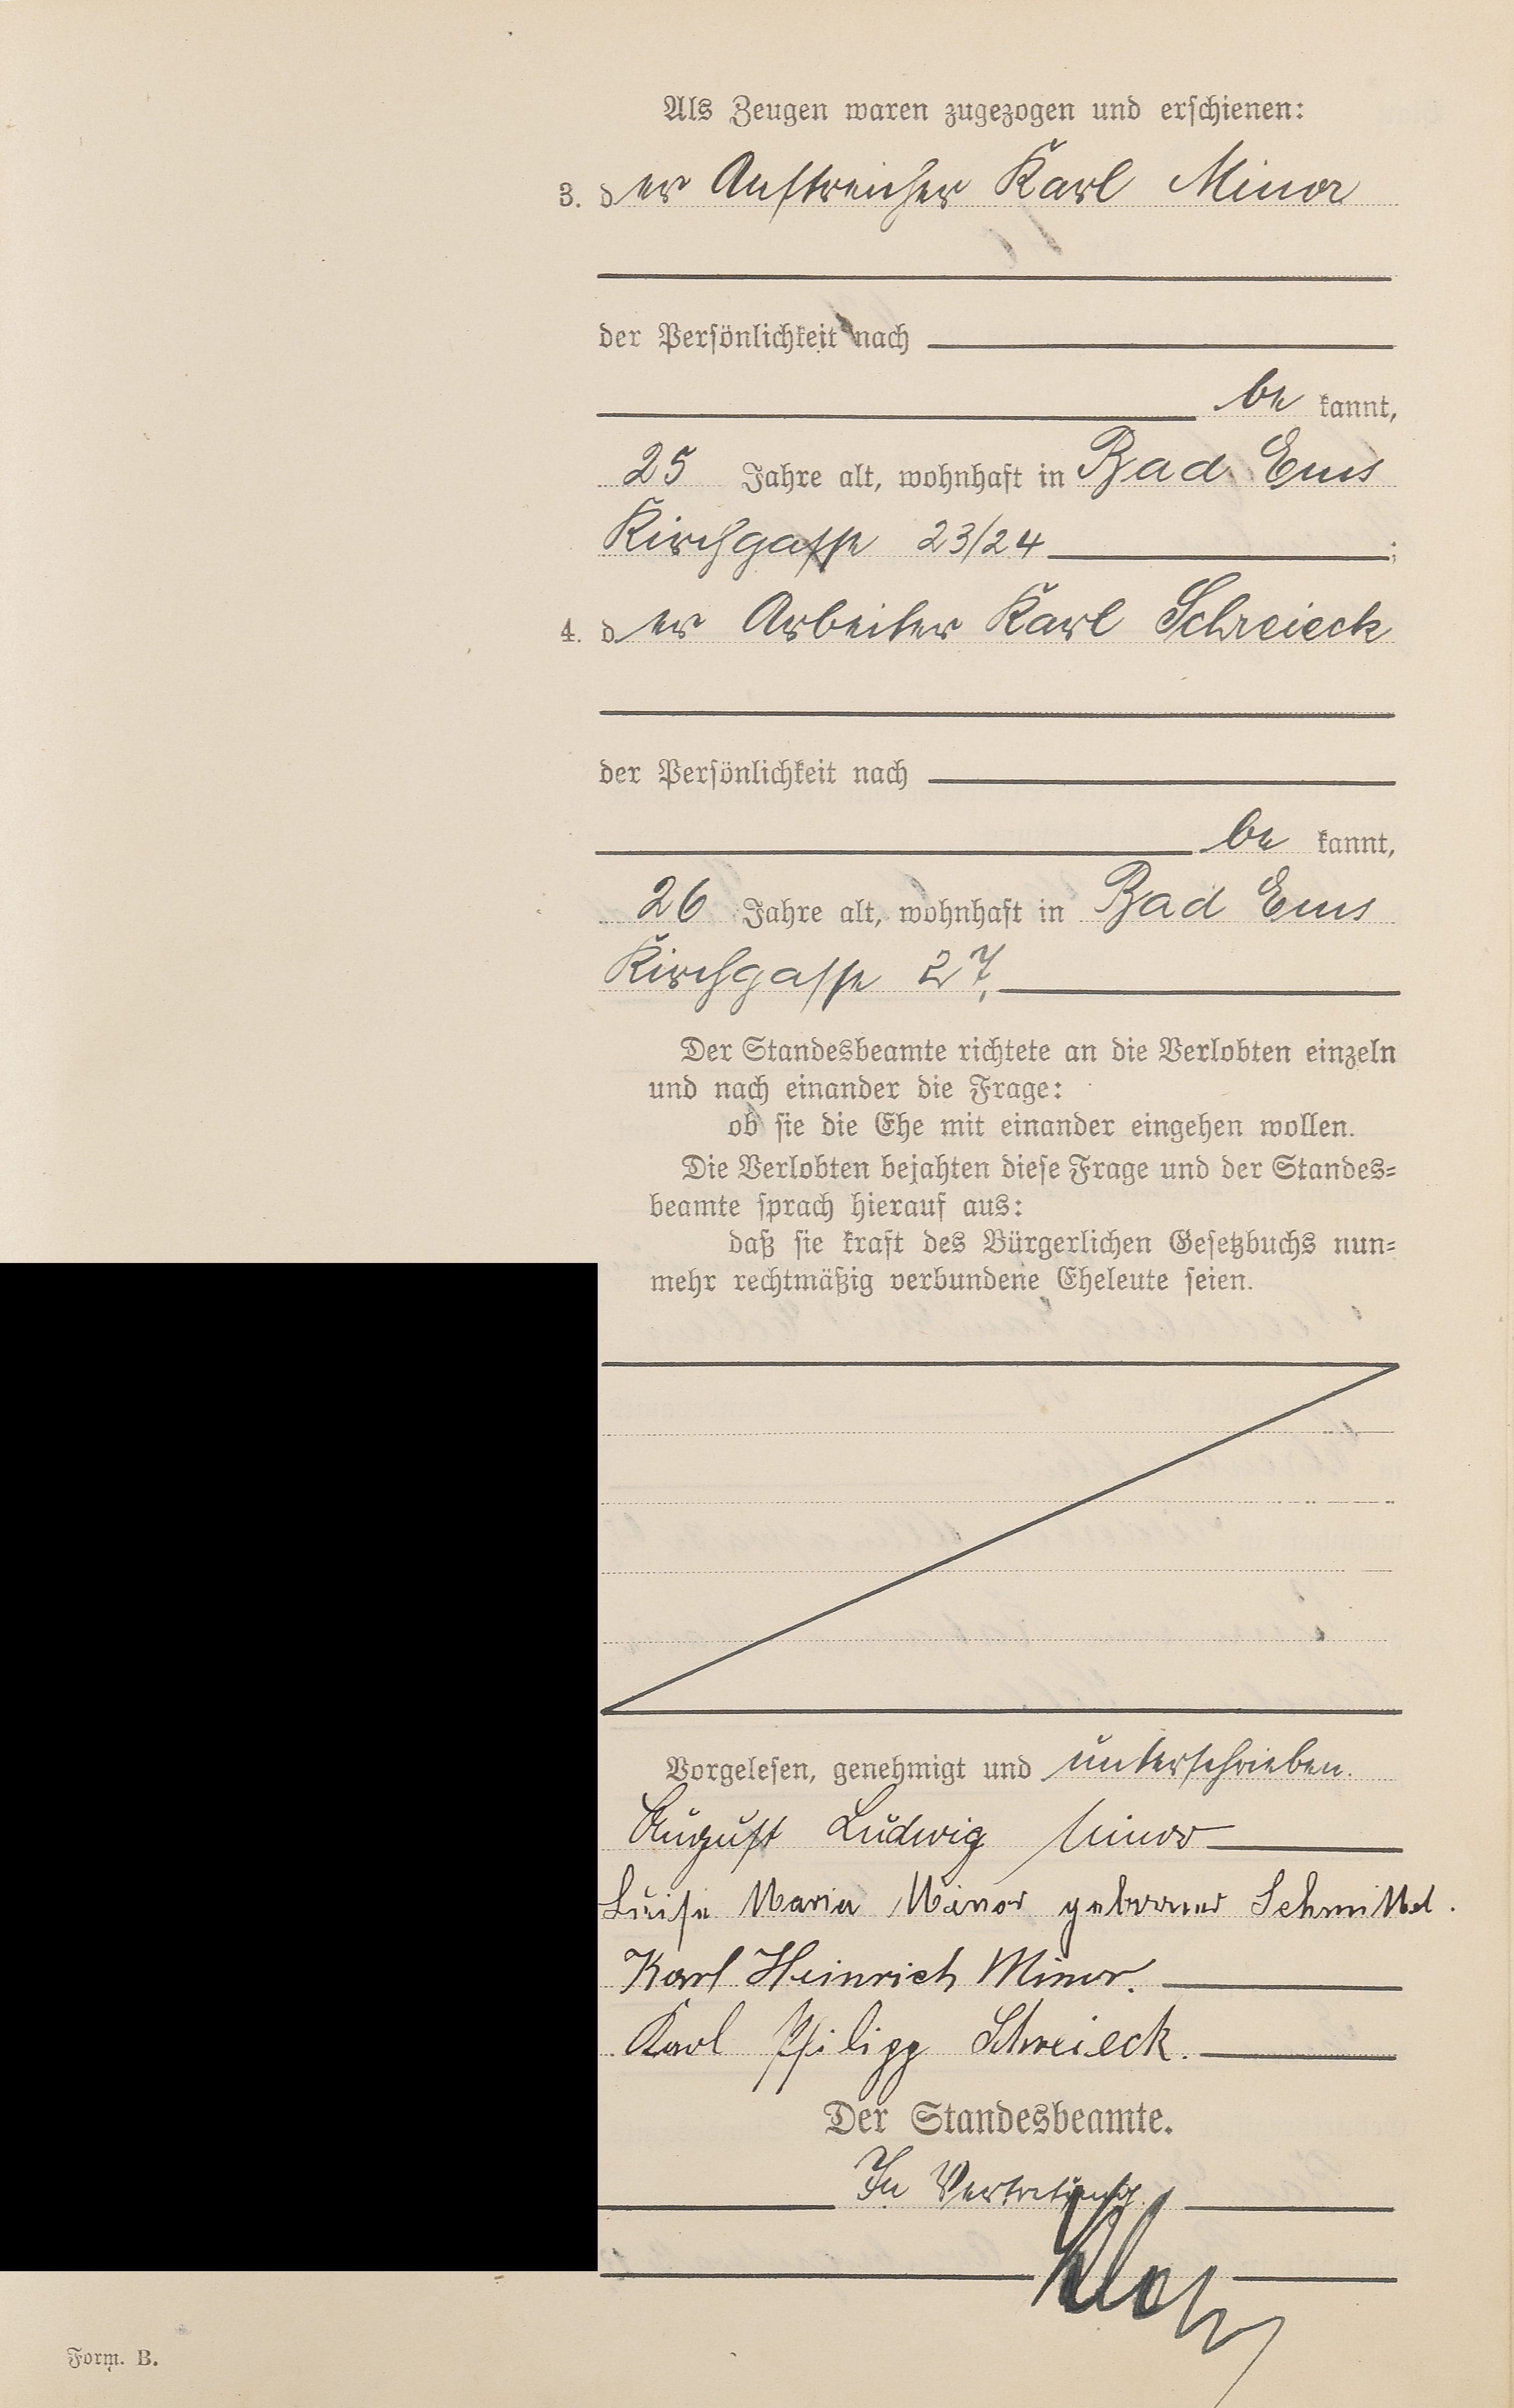 Als Zeugen waren zugezogen und erschienen:
3. der Anstreicher Karl Minor
der Persönlichkeit nach
be kannt,
25 Jahre alt, wohnhaft in Bad Ems
Kirchgasse 23/24 ;
4. der Arbeiter Karl Schreieck
der Persönlichkeit nach
be kannt,
26 Jahre alt, wohnhaft in Bad Ems
Kirchgasse 27.
Der Standesbeamte richtete an die Verlobten einzeln
und nach einander die Frage:
ob sie die Ehe mit einander eingehen wollen.
Die Verlobten bejahten diese Frage und der Standes=
beamte sprach hierauf aus:
daß sie kraft des Bürgerlichen Gesetzbuchs nun=
mehr rechtmäßig verbundene Eheleute seien.
Vorgelesen, genehmigt und unterschrieben.
August Ludwig Minor
Luise Maria Minor geborene Schmittel.
Karl Heinrich Minor.
Karl Philipp Schreieck.
Der Standesbeamte.
In Vertretung
Form. B.